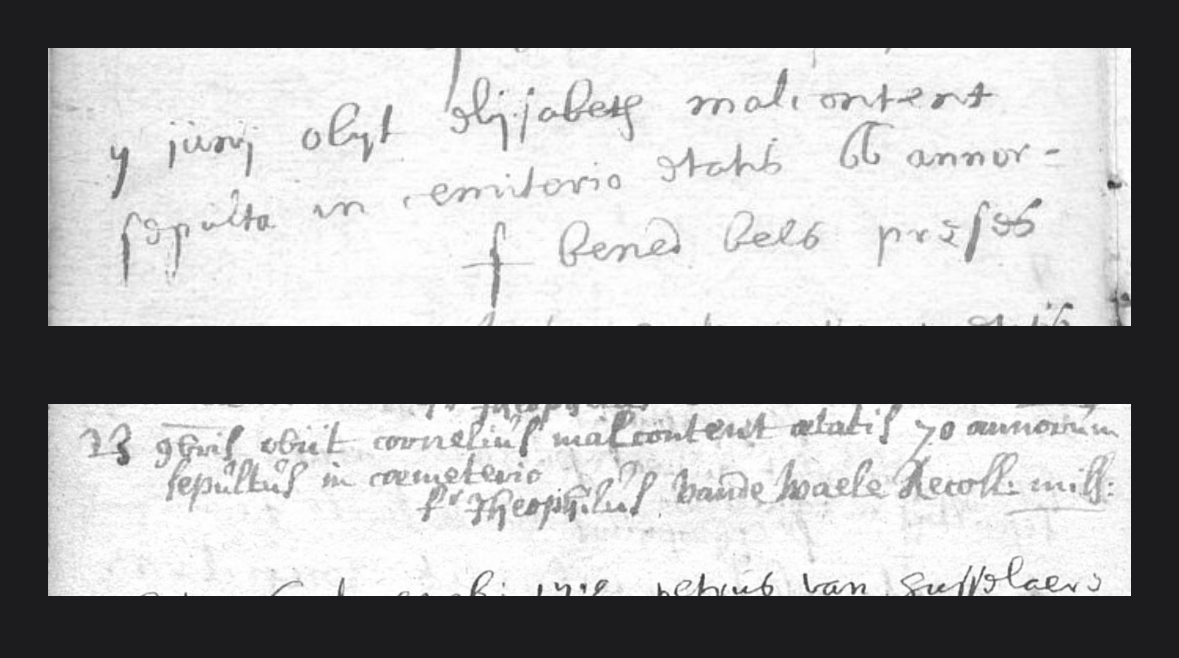 y junij obyt Elijsabeth malcontent
sepulta in cemiterio etatis 66 annor=
f bened bels preses
23 9bris obiit cornelius malcontent ætatis 70 annorum
sepultus in coemeterio
fr Theophilus vande Waele Recoll: miss:
petrus van Gusselaers